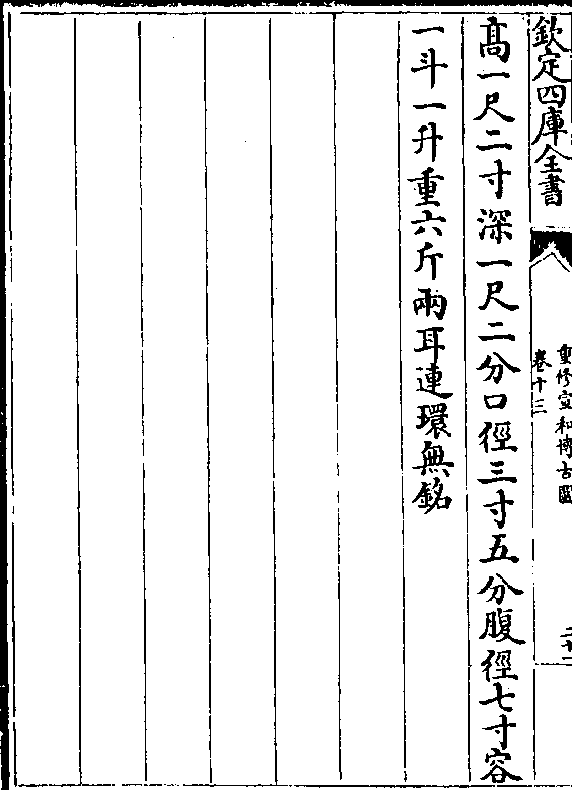 欽定四庫全書
重修宣和博古圖
卷十三
高一尺二寸深一尺二分口徑三寸五分腹徑七寸容
一斗一升重六斤兩耳連環無銘